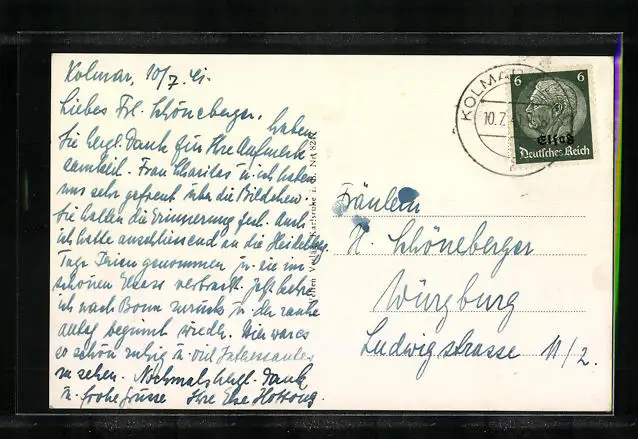 Kolmar, 10/7.41.
Liebes Frl. Schöneberger, haben
Sie hrzl. Dank für Ihre Aufmerk-
samkeit. Frau Charitas u. ich haben
uns sehr gefreut über die Bildchen.
Sie halten die Erinnerung fest. Auch
ich hatte anschliessend an die Heidelbg.
Tage Ferien genommen u. sie im
schönen Elsass verbracht. Jetzt kehre
ich nach Bonn zurück u. der rauhe
Alltag beginnt wieder. Hier war es
so schön ruhig u. viel Interessantes
zu sehen. Nochmals hrzl. Dank
u. frohe Grüsse Ihre Else
KOLMAR
10.7.
6 6
Elsaß
Deutsches Reich
Verlag, Karlsruhe i. B. Nr.
Fräulein
H. Schöneberger
Würzburg
Ludwigstrasse 11/2.